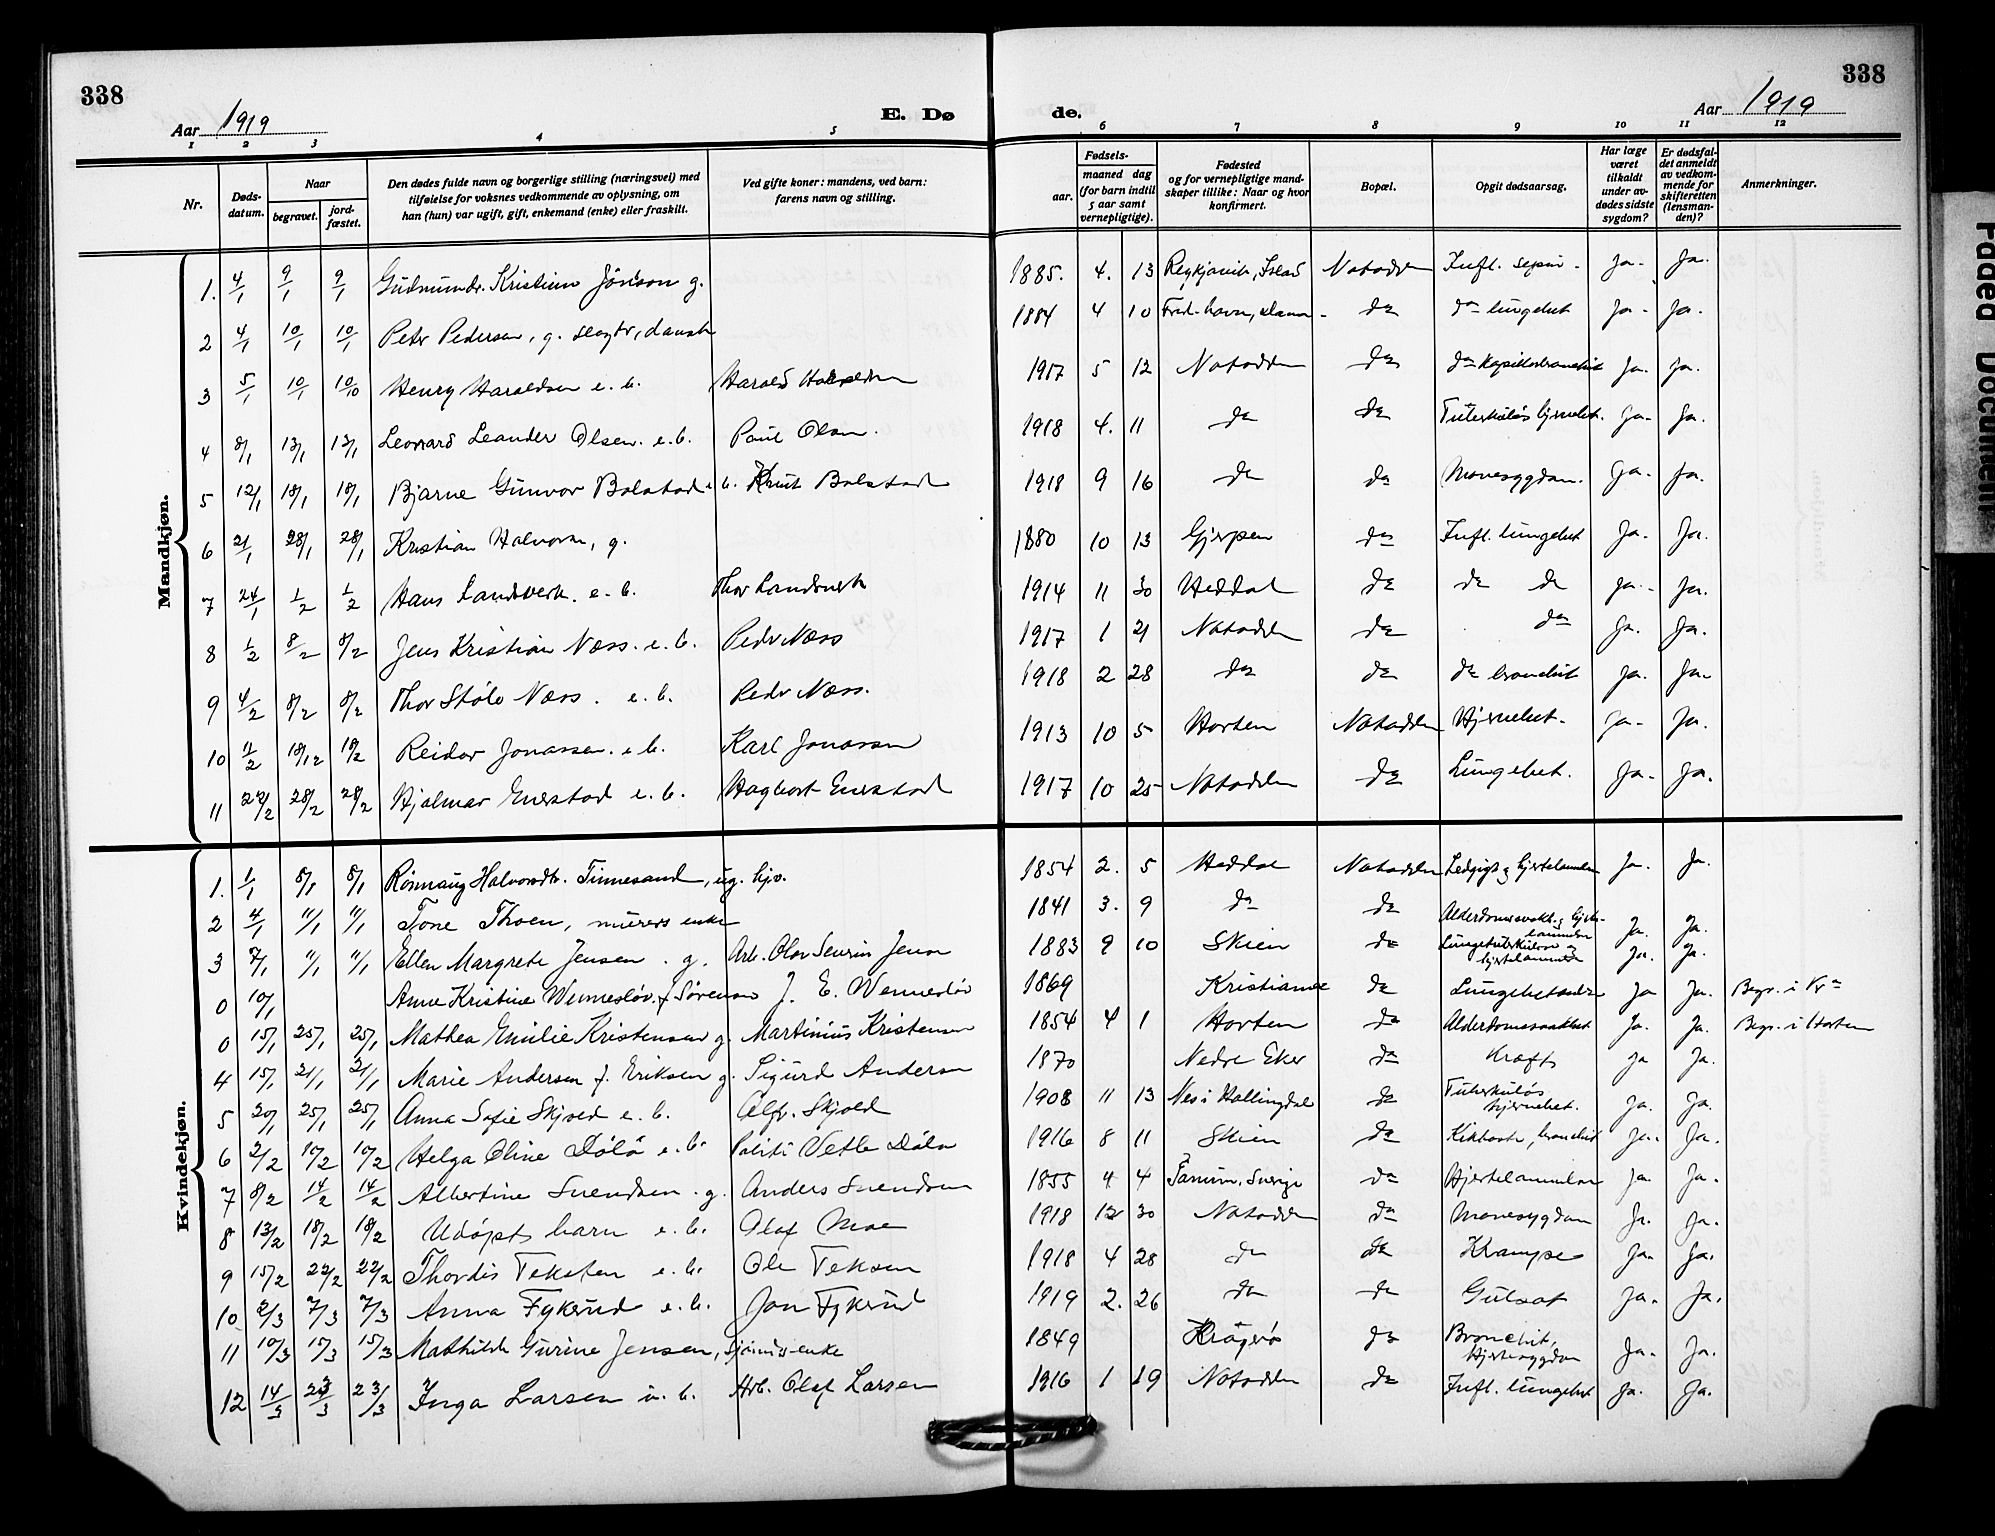 338
338
Aar 1919
E. Dø
de.
Aar 1919
1 2 3 4 5 6 7 8 9 10 11 12
Nr.
Døds-
datum.
Naar
begravet.
jord-
fæstet.
Den dødes fulde navn og borgerlige stilling (næringsvei) med
tilføielse for voksnes vedkommende av oplysning, om
han (hun) var ugift, gift, enkemand (enke) eller fraskilt.
Ved gifte koner: mandens, ved barn:
farens navn og stilling.
Fødsels-
aar.
maaned dag
(for barn indtil
5 aar samt
vernepligtige).
Fødested
og for vernepligtige mand-
skaper tillike: Naar og hvor
konfirmert.
Bopæl.
Opgit dødsaarsag.
Har læge
været
tilkaldt
under av-
dødes sidste
sygdom?
Er dødsfal-
det anmeldt
av vedkom-
mende for
skifteretten
(lensman-
den)?
Anmerkninger.
Mandkjøn.
1. 4/1 9/1 9/1 Gudmundr. Kristinn Jónsson g. 1885. 4. 13 Reykjavik, Island Notodden Infl. sepsis - Ja. Ja.
2 4/1 10/1 10/1 Petr Pedersen, g. slagtr, dansk 1884 4 10 Fred.havn, Danm - do do lungebet Ja. Ja.
3 5/1 10/1 10/10 Henry Haraldsen e. b. Harald Haraldsen 1917 5 12 Notodden do do Kapillærbronchit Ja. Ja.
4 8/1 13/1 13/1 Leonard Leander Olsen. e. b. Paul Olsen. 1918 4. 11 do do Tuberkuløs hjernebet. Ja. Ja.
5 12/1 18/1 18/1 Bjarne Gunvor Bolstad e. b. Knut Bolstad 1918 9 16 do do Mavesygdom. Ja. Ja.
6 21/1 28/1 28/1 Kristian Halvorsn, g. 1880 10 13 Gjerpen do Infl. lungebet Ja. Ja.
7 24/1 1/2 1/2 Hans Landsverk. e. b. Thor Landsverk 1914 11 30 Heddal do do do Ja. Ja.
8 1/2 8/2 8/2 Jens Kristian Næss. e. b. Pedr Næss 1917 1 21 Notodden do do Ja. Ja.
9 4/2 8/2 8/2 Thor Ståle Næss. e. b. Pedr Næss. 1918 2 28 do do do bronchit Ja. Ja.
10 11/2 18/12 18/2 Reidar Jonassen. e. b. Karl Jonassen 1913 10 5 Horten Notodden Hjernebet. Ja. Ja.
11 22/2 28/2 28/2 Hjalmar Enerstad e. b. Hagbart Enerstad 1917 10 25 Notodden do Lungebet. Ja. Ja.
Kvindekjøn.
1. 1/1 8/1 8/1 Rønnaug Halvorsdtr. Tinnesand, ug. hjv. 1854 2. 5 Heddal Notodden Ledgigt og hjertelammelse Ja. Ja.
2 4/1 11/1 11/1 Tone Thoen, murers enke 1841 3. 9 do do Alderdomssvakh. og hjerte-
lammelse Ja. Ja.
3 7/1 11/1 11/1 Ellen Margrete Jensen. g. Arb. Olav Severin Jensen 1883 9 10 Skien do Lungetuberkulose og
hjertelammelse Ja. Ja.
0 10/1 Anne Kristine Wennesløv. f. Sørensen J. E. Wennesløv 1869 Kristiania do Lungebetændelse Ja Ja. Begr. i Kra
0 15/1 25/1 25/1 Mathea Emilie Kristensen g. Martinius Kristensen 1854 4 1 Horten do Alderdomssvakhet Ja. Ja. Begr. i Horten
4 15/1 21/1 21/1 Marie Andersen f. Eriksen g. Sigurd Andersen 1870 Nedre Eker do Kræft Ja Ja.
5 20/1 25/1 25/1 Anna Sofie Skjold e. b. Alfr. Skjold 1908 11 13 Nes i Hallingdal do Tuberkuløs
hjernebet. Ja. Ja.
6 2/2 10/2 10/2 Helga Oline Dålå e. b. Politi Vetle Dåla 1916 8 11 Skien do Kikhoste, bronchit Ja. Ja.
7 8/2 14/2 14/2 Albertine Svendsen. g. Anders Svendsen 1855 4 4 Tanum, Sverige do Hjertelammelse Ja. Ja.
8 13/2 18/2 18/2 Udøpt barn e. b. Olaf Moe 1918 12 30 Notodden do Mavesygdom Ja. Ja.
9 15/2 22/2 22/2 Thordis Teksten e. b. Ole Teksen 1918 4 28 do do Krampe Ja. Ja.
10 2/3 7/3 7/3 Anna Fykerud e. b. Jon Fykerud 1919 2. 26 do do Gulsot Ja. Ja.
11 10/3 15/3 15/3 Mathilde Gurine Jensen, sjømds-enke 1849 Kragerø do Bronchit,
Hjertesygdom Ja. Ja.
12 14/3 23/3 23/3 Inga Larsen u. b. Arb. Olaf Larsen 1916 1 19 Notodden do Infl. lungebet Ja. Ja.
Faded Document